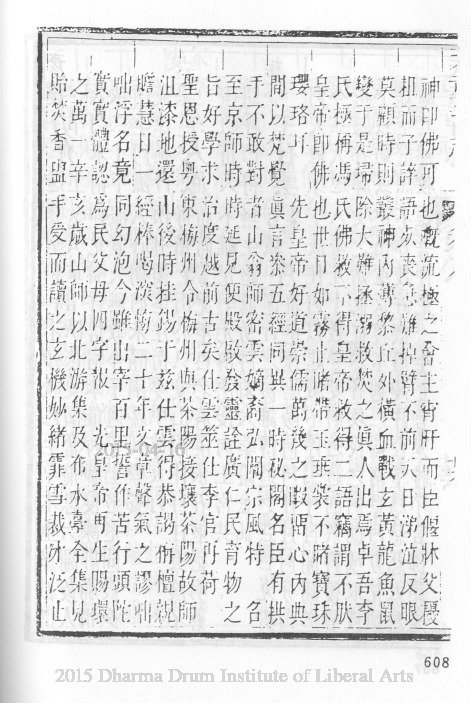 神即佛可也慨流極之會主宵旰而臣偃牀父擾
祖而子誶語處喪急難掉臂不前天日涕泣反眼
莫顧時則叢神內薄黎丘外橫血載玄黃龍魚鼠
變于是埽除大難拯溺救焚之眞人出焉卓吾李
氏極稱馮氏佛救不得皇帝救得二語竊謂不肰
皇帝卽佛也世日如霧止睹帶玉乘裝不睹寶珠
瓔珞耳 先皇帝好道崇儒萬㡬之暇畱心內典
間以梵覺眞言叅五經同異一時秘閣名臣有拱
手不敢對者山翁師密雲嫡裔弘闡宗風特 名
至京師時時延見便殿啟發靈詮廣仁民育物之
旨好學求治度越前古矣仕雲筮仕李官再荷
聖恩授粵東梅州令梅州與茶陽接壤茶陽故師
沮漆地還山後時挂錫于兹仕雲得恭謁栴檀親
瞻慧日一經棒喝淡綺二十年文章聲氣之謬咄
咄浮名竟同幻泡今雖出宰百里誓作苦行頭陀
實實體認爲民父母四字報 先皇帝再生賜環
之萬一辛亥歲山師以北游集及布水臺全集見
貽焚香盥手受而讀之玄機妙緒霏雪裁冰泛止
608
2015 Dharma Drum Institute of Liberal Arts